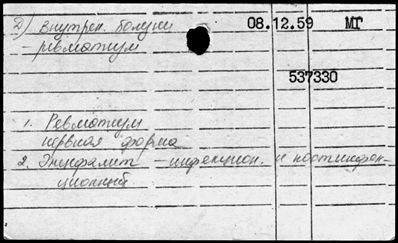 2) Внутрен. болезни 08.12.59 МГ
- ревматизм
537330
1. Ревматизм
нервная форма
2. Энцефалит - инфекцион. и постинфек-
ционный.